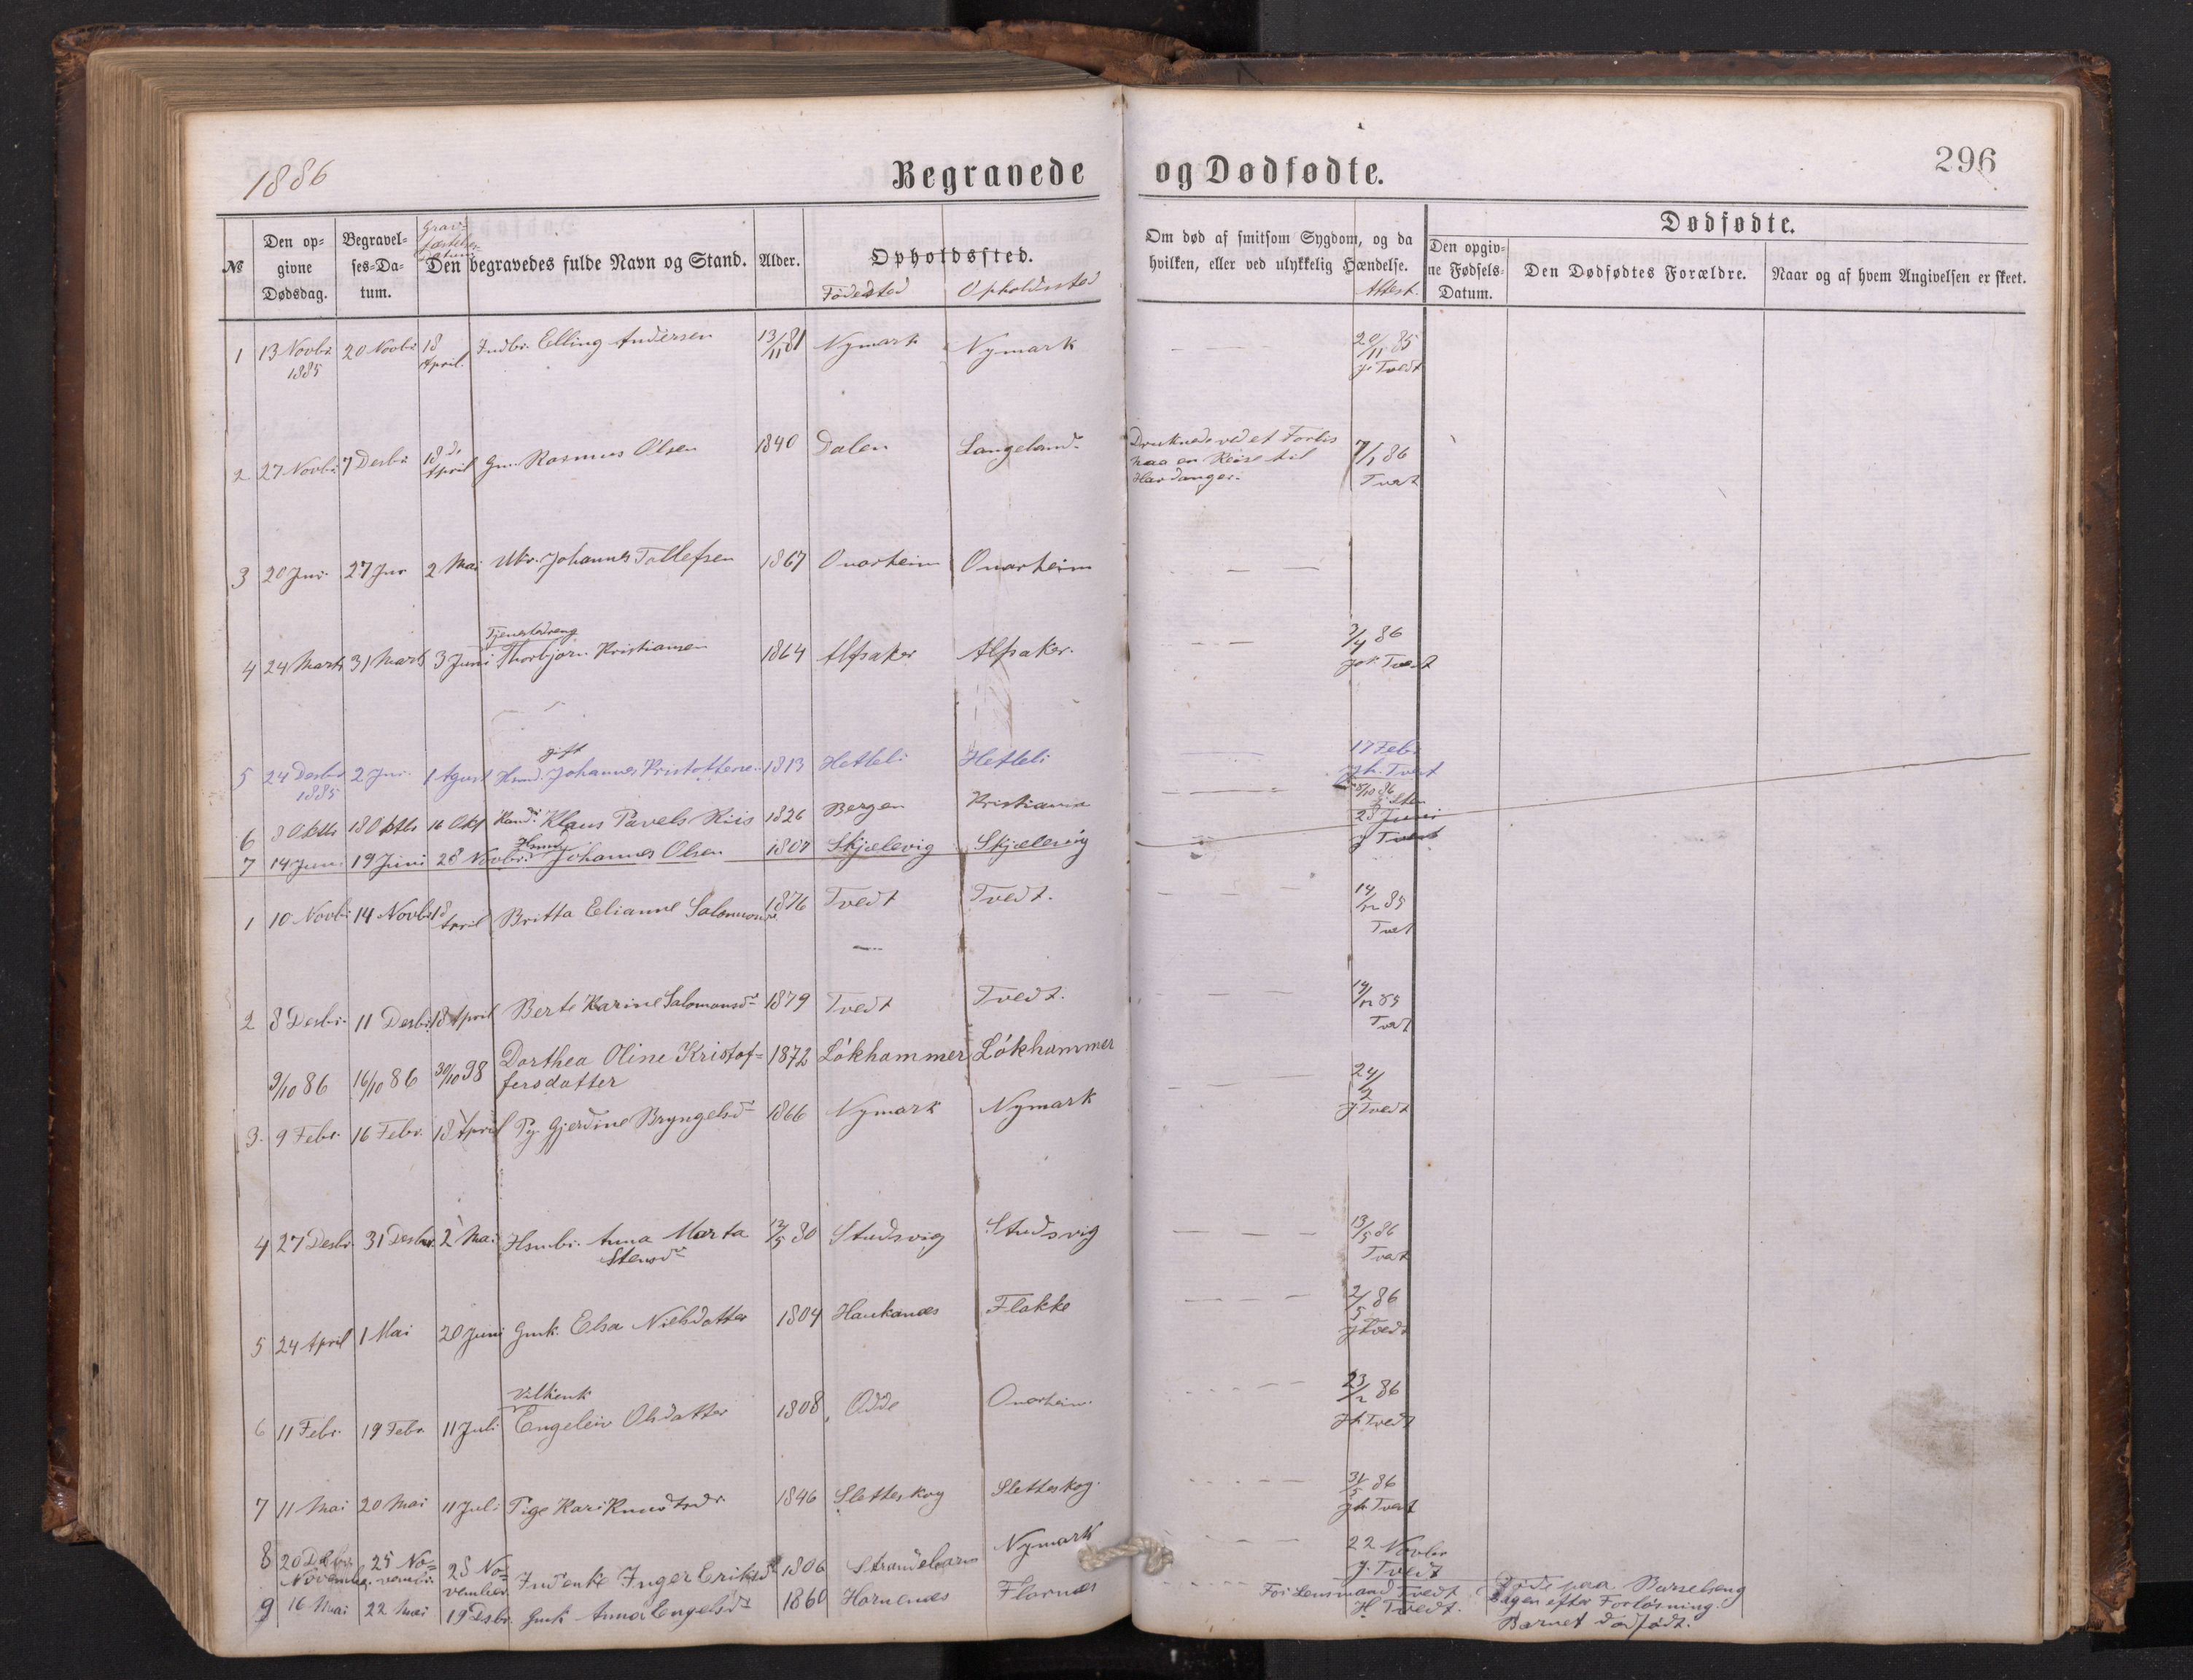 1886
Begravede og Dødfødte.
296
№
Den opgivne Dødsdag.
Begravelses-Datum.
Grav-
Den begravedes fulde Navn og Stand.
Alder.
Opholdssted.
Fødested
Opholdssted
Om død af smitsom Sygdom, og da hvilken, eller ved ulykkelig Hændelse.
Attest.
Dødfødte.
Den opgivne Fødsels-Datum.
Den Dødfødtes Forældre.
Naar og af hvem Angivelsen er skeet.
1 13 Novbr. 1885 20 Novbr. 18 April. Indbr. Elling Andersen 13/11 81 Nymark Nymark 20/11 85 J. Tvedt
2 27 Novbr. 7 Desbr. 18 April Gm. Rasmus Olsen 1840 Dalen Langeland Druknede ved et Forlis paa en Reise til Hardanger. 7/1 86 Tvedt
3 20 Jnr. 27 Jnr 2 Mai Ukr. Johannes Tollefsen 1867 Onarheim Onarheim
4 24 Marts 31 Marts 3 Juni Tjenestedreng Thorbjørn Kristiansen 1864 Alfsaker Alfsaker. 3/4 86 Joh. Tvedt
5 24 Desbr 1885 2 Jnr. 1 Agust gift Hsmd. Johannes Kristoffersen 1813 Hetleli Hetleli 17 Febr Joh. Tvedt
6 8 Oktb 18 Oktb 16 Okt Hand. Klaus Pavels Riis 1826 Bergen Kristiania 8/10 86
7 14 Juni 19 Juni 28 Novbr. Hsmd Johannes Olsen 1807 Skjælevig Skjælevig 28 Juni J Tvedt
1 10 Novbr 14 Novbr 18 April Britta Elianne Salomonsd 1876 Tvedt Tvedt. 14/12 85 Tvedt
2 8 Desbr. 11 Desbr. 18 April Berte Karine Salomonsdr 1879 Tvedt Tvedt. 14/12 85 Tvedt
9/10 86 16/10 86 30/10 98 Dorthea Oline Kristof=
fersdatter 1872 Løkhammer Løkhammer
3. 9 Febr. 16 Febr. 18 April Pg. Gjerdine Bryngelsdr 1866 Nymark Nymark 24/2 J Tvedt
4 27 Desbr. 31 Desbr. 2 Mai Hsmbr. Anna Marta Stensdr 12/5 80 Studsvig Studsvig 13/5 86 Tvedt
5 24 April 1 Mai 20 Juni Gmk. Elsa Nielsdatter 1804 Haukanæs Flakke 2/5 86 J Tvedt
6 11 Febr. 19 Febr. 11 Juli Vilkenk Engeleiv Olsdatter 1808 Odde Onarheim. 23/2 86 Joh Tvedt
7 11 Mai 20 Mai 11 Juli Pige Kari Knudsdr. 1846 Sletteskog Sletteskog. 31/5 86 Joh Tvedt
8 20 November 25 No=vember 28 No=vember. Indenke Inger Eriksdr 1806 Strandebarm Nymark 22 Novbr J. Tvedt
9 16 Mai 22 Mai 19 Dsbr. Gmk Anna Engelsdr 1860 Hornenes Flornæs For Lensmand Tvedt H Tvedt. Døde paa Barselseng
Dagen efter Forløsning.
Barnet dødfødt.